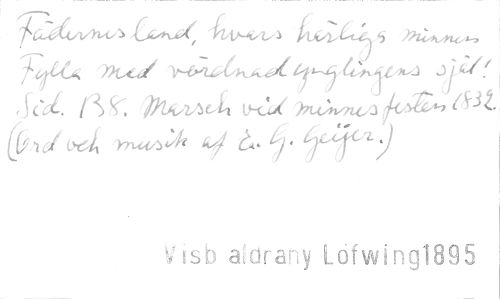 Fädernesland, hvars härliga minnen
Fylla med vördnad ynglingens själ!
Sid. 138. Marsch vid minnesfesten 1832.
(Ord och musik af E. G. Geijer.)
Visb aldrany Löfwing1895